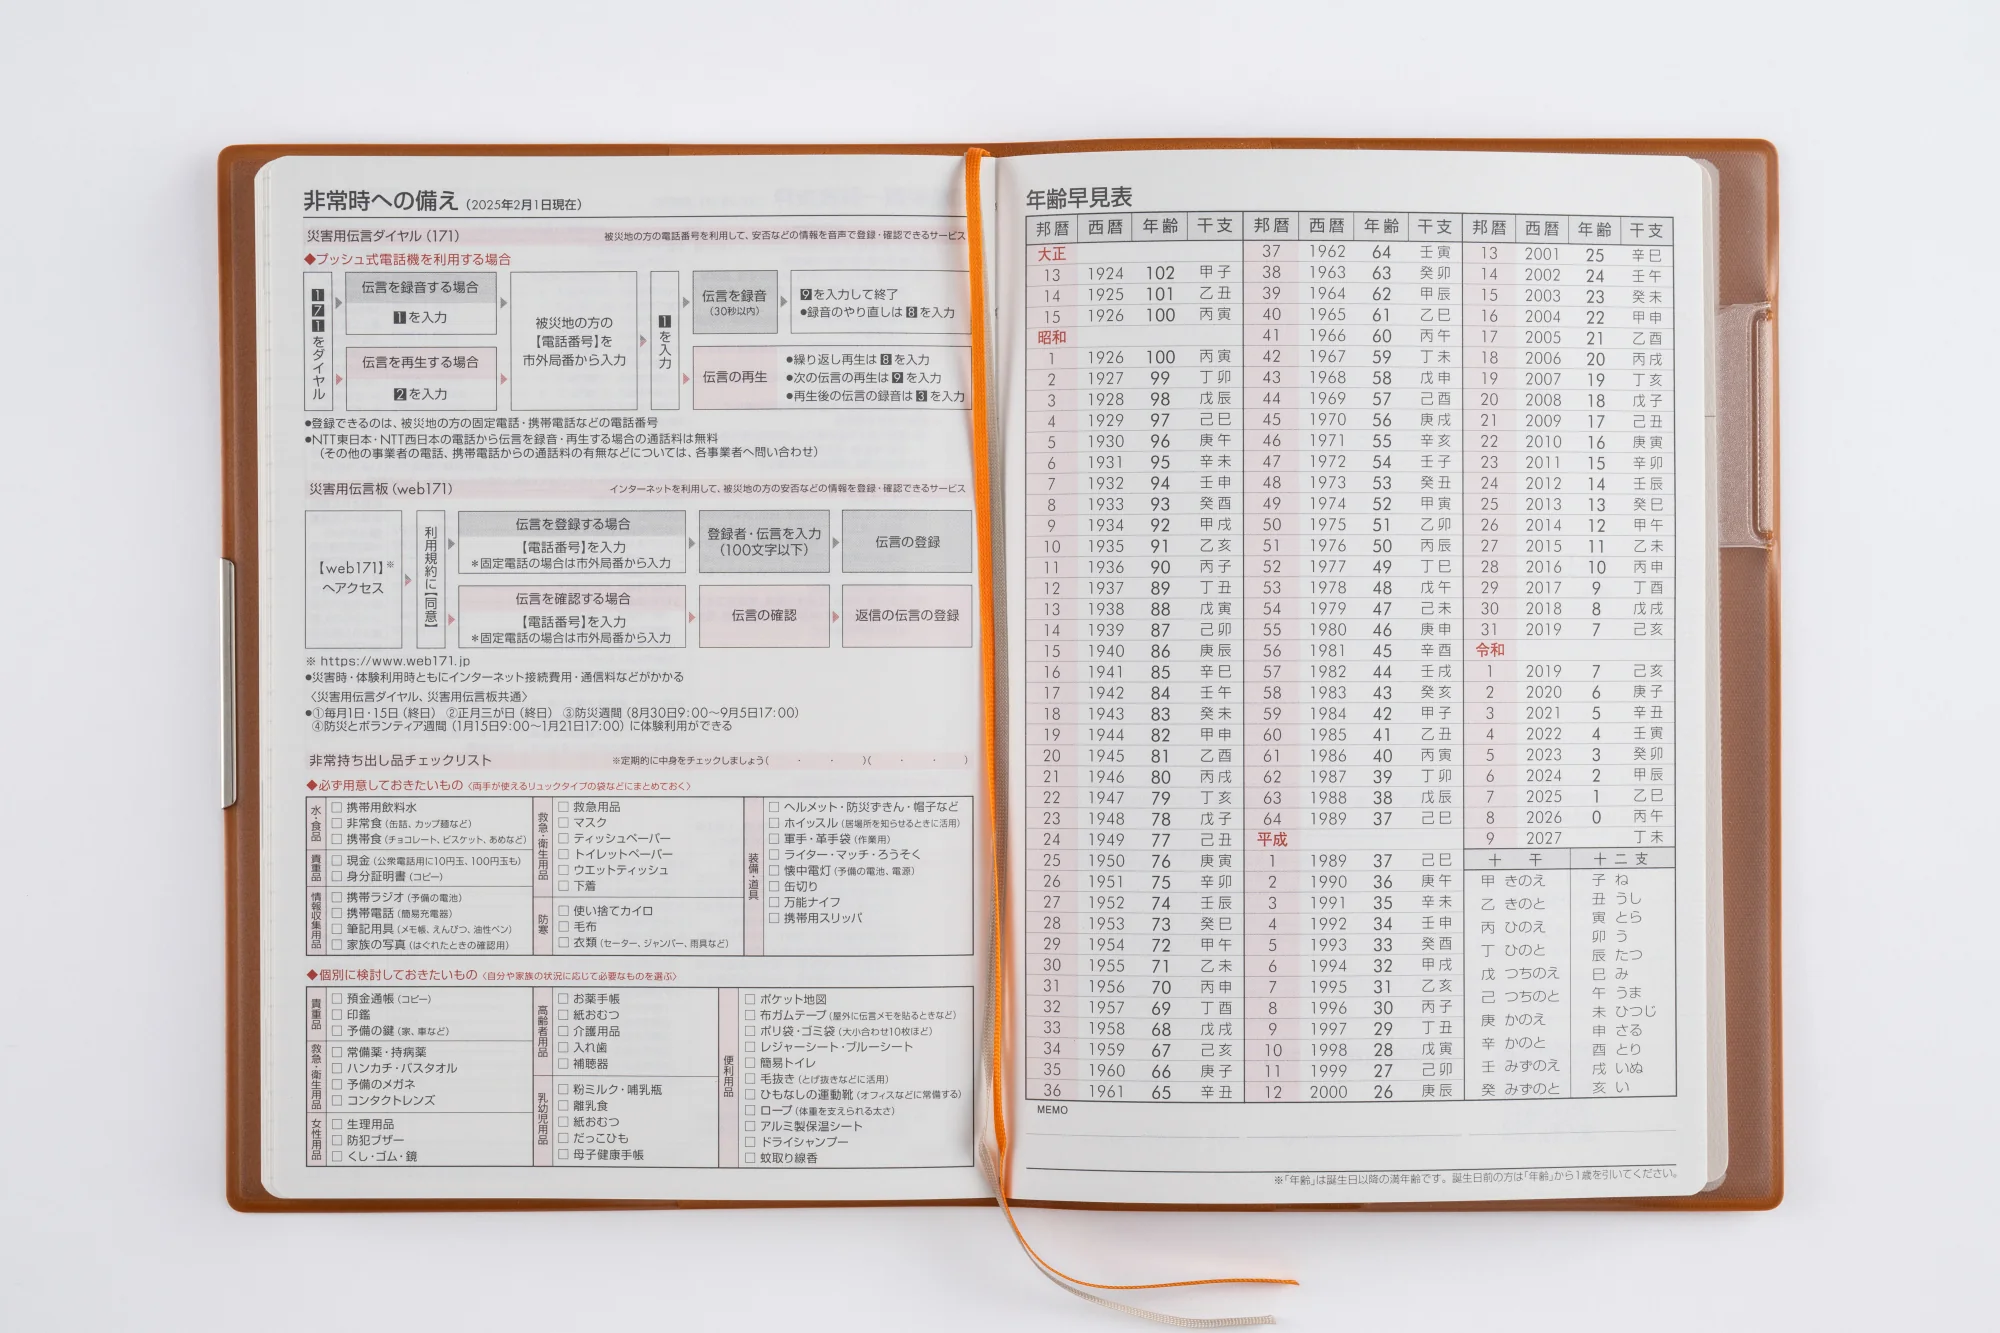 非常時への備え（2025年2月1日現在）
災害用伝言ダイヤル（171） 被災地の方の電話番号を利用して、安否などの情報を音声で登録・確認できるサービス
◆プッシュ式電話機を利用する場合
171をダイヤル
伝言を録音する場合
1を入力
伝言を再生する場合
2を入力
被災地の方の
【電話番号】を
市外局番から入力
1を入力
伝言を録音
（30秒以内）
9を入力して終了
●録音のやり直しは8を入力
伝言の再生
●繰り返し再生は8を入力
●次の伝言の再生は9を入力
●再生後の伝言の録音は3を入力
●登録できるのは、被災地の方の固定電話・携帯電話などの電話番号
●NTT東日本・NTT西日本の電話から伝言を録音・再生する場合の通話料は無料
（その他の事業者の電話、携帯電話からの通話料の有無などについては、各事業者へ問い合わせ）
災害用伝言板（web171） インターネットを利用して、被災地の方の安否などの情報を登録・確認できるサービス
【web171】※
へアクセス
利用規約に【同意】
伝言を登録する場合
【電話番号】を入力
＊固定電話の場合は市外局番から入力
登録者・伝言を入力
（100文字以下）
伝言の登録
伝言を確認する場合
【電話番号】を入力
＊固定電話の場合は市外局番から入力
伝言の確認
返信の伝言の登録
※ https://www.web171.jp
●災害時・体験利用時ともにインターネット接続費用・通信料などがかかる
〈災害用伝言ダイヤル、災害用伝言板共通〉
●①毎月1日・15日（終日） ②正月三が日（終日） ③防災週間（8月30日9：00～9月5日17：00）
④防災とボランティア週間（1月15日9：00～1月21日17：00）に体験利用ができる
非常持ち出し品チェックリスト ※定期的に中身をチェックしましょう（ ・ ・ ）（ ・ ・ ）
◆必ず用意しておきたいもの〈両手が使えるリュックタイプの袋などにまとめておく〉
水・食品
□ 携帯用飲料水
□ 非常食（缶詰、カップ麺など）
□ 携帯食（チョコレート、ビスケット、あめなど）
貴重品
□ 現金（公衆電話用に10円玉、100円玉も）
□ 身分証明書（コピー）
情報収集用品
□ 携帯ラジオ（予備の電池）
□ 携帯電話（簡易充電器）
□ 筆記用具（メモ帳、えんぴつ、油性ペン）
□ 家族の写真（はぐれたときの確認用）
救急・衛生用品
□ 救急用品
□ マスク
□ ティッシュペーパー
□ トイレットペーパー
□ ウエットティッシュ
□ 下着
防寒
□ 使い捨てカイロ
□ 毛布
□ 衣類（セーター、ジャンパー、雨具など）
装備・道具
□ ヘルメット・防災ずきん・帽子など
□ ホイッスル（居場所を知らせるときに活用）
□ 軍手・革手袋（作業用）
□ ライター・マッチ・ろうそく
□ 懐中電灯（予備の電池、電源）
□ 缶切り
□ 万能ナイフ
□ 携帯用スリッパ
◆個別に検討しておきたいもの〈自分や家族の状況に応じて必要なものを選ぶ〉
貴重品
□ 預金通帳（コピー）
□ 印鑑
□ 予備の鍵（家、車など）
救急・衛生用品
□ 常備薬・持病薬
□ ハンカチ・バスタオル
□ 予備のメガネ
□ コンタクトレンズ
女性用品
□ 生理用品
□ 防犯ブザー
□ くし・ゴム・鏡
高齢者用品
□ お薬手帳
□ 紙おむつ
□ 介護用品
□ 入れ歯
□ 補聴器
乳幼児用品
□ 粉ミルク・哺乳瓶
□ 離乳食
□ 紙おむつ
□ だっこひも
□ 母子健康手帳
便利用品
□ ポケット地図
□ 布ガムテープ（屋外に伝言メモを貼るときなど）
□ ポリ袋・ゴミ袋（大小合わせ10枚ほど）
□ レジャーシート・ブルーシート
□ 簡易トイレ
□ 毛抜き（とげ抜きなどに活用）
□ ひもなしの運動靴（オフィスなどに常備する）
□ ロープ（体重を支えられる太さ）
□ アルミ製保温シート
□ ドライシャンプー
□ 蚊取り線香
年齢早見表
邦暦 西暦 年齢 干支
大正
13 1924 102 甲子
14 1925 101 乙丑
15 1926 100 丙寅
昭和
1 1926 100 丙寅
2 1927 99 丁卯
3 1928 98 戊辰
4 1929 97 己巳
5 1930 96 庚午
6 1931 95 辛未
7 1932 94 壬申
8 1933 93 癸酉
9 1934 92 甲戌
10 1935 91 乙亥
11 1936 90 丙子
12 1937 89 丁丑
13 1938 88 戊寅
14 1939 87 己卯
15 1940 86 庚辰
16 1941 85 辛巳
17 1942 84 壬午
18 1943 83 癸未
19 1944 82 甲申
20 1945 81 乙酉
21 1946 80 丙戌
22 1947 79 丁亥
23 1948 78 戊子
24 1949 77 己丑
25 1950 76 庚寅
26 1951 75 辛卯
27 1952 74 壬辰
28 1953 73 癸巳
29 1954 72 甲午
30 1955 71 乙未
31 1956 70 丙申
32 1957 69 丁酉
33 1958 68 戊戌
34 1959 67 己亥
35 1960 66 庚子
36 1961 65 辛丑
邦暦 西暦 年齢 干支
37 1962 64 壬寅
38 1963 63 癸卯
39 1964 62 甲辰
40 1965 61 乙巳
41 1966 60 丙午
42 1967 59 丁未
43 1968 58 戊申
44 1969 57 己酉
45 1970 56 庚戌
46 1971 55 辛亥
47 1972 54 壬子
48 1973 53 癸丑
49 1974 52 甲寅
50 1975 51 乙卯
51 1976 50 丙辰
52 1977 49 丁巳
53 1978 48 戊午
54 1979 47 己未
55 1980 46 庚申
56 1981 45 辛酉
57 1982 44 壬戌
58 1983 43 癸亥
59 1984 42 甲子
60 1985 41 乙丑
61 1986 40 丙寅
62 1987 39 丁卯
63 1988 38 戊辰
64 1989 37 己巳
平成
1 1989 37 己巳
2 1990 36 庚午
3 1991 35 辛未
4 1992 34 壬申
5 1993 33 癸酉
6 1994 32 甲戌
7 1995 31 乙亥
8 1996 30 丙子
9 1997 29 丁丑
10 1998 28 戊寅
11 1999 27 己卯
12 2000 26 庚辰
邦暦 西暦 年齢 干支
13 2001 25 辛巳
14 2002 24 壬午
15 2003 23 癸未
16 2004 22 甲申
17 2005 21 乙酉
18 2006 20 丙戌
19 2007 19 丁亥
20 2008 18 戊子
21 2009 17 己丑
22 2010 16 庚寅
23 2011 15 辛卯
24 2012 14 壬辰
25 2013 13 癸巳
26 2014 12 甲午
27 2015 11 乙未
28 2016 10 丙申
29 2017 9 丁酉
30 2018 8 戊戌
31 2019 7 己亥
令和
1 2019 7 己亥
2 2020 6 庚子
3 2021 5 辛丑
4 2022 4 壬寅
5 2023 3 癸卯
6 2024 2 甲辰
7 2025 1 乙巳
8 2026 0 丙午
9 2027 丁未
十干
甲 きのえ
乙 きのと
丙 ひのえ
丁 ひのと
戊 つちのえ
己 つちのと
庚 かのえ
辛 かのと
壬 みずのえ
癸 みずのと
十二支
子 ね
丑 うし
寅 とら
卯 う
辰 たつ
巳 み
午 うま
未 ひつじ
申 さる
酉 とり
戌 いぬ
亥 い
MEMO
※「年齢」は誕生日以降の満年齢です。誕生日前の方は「年齢」から1歳を引いてください。